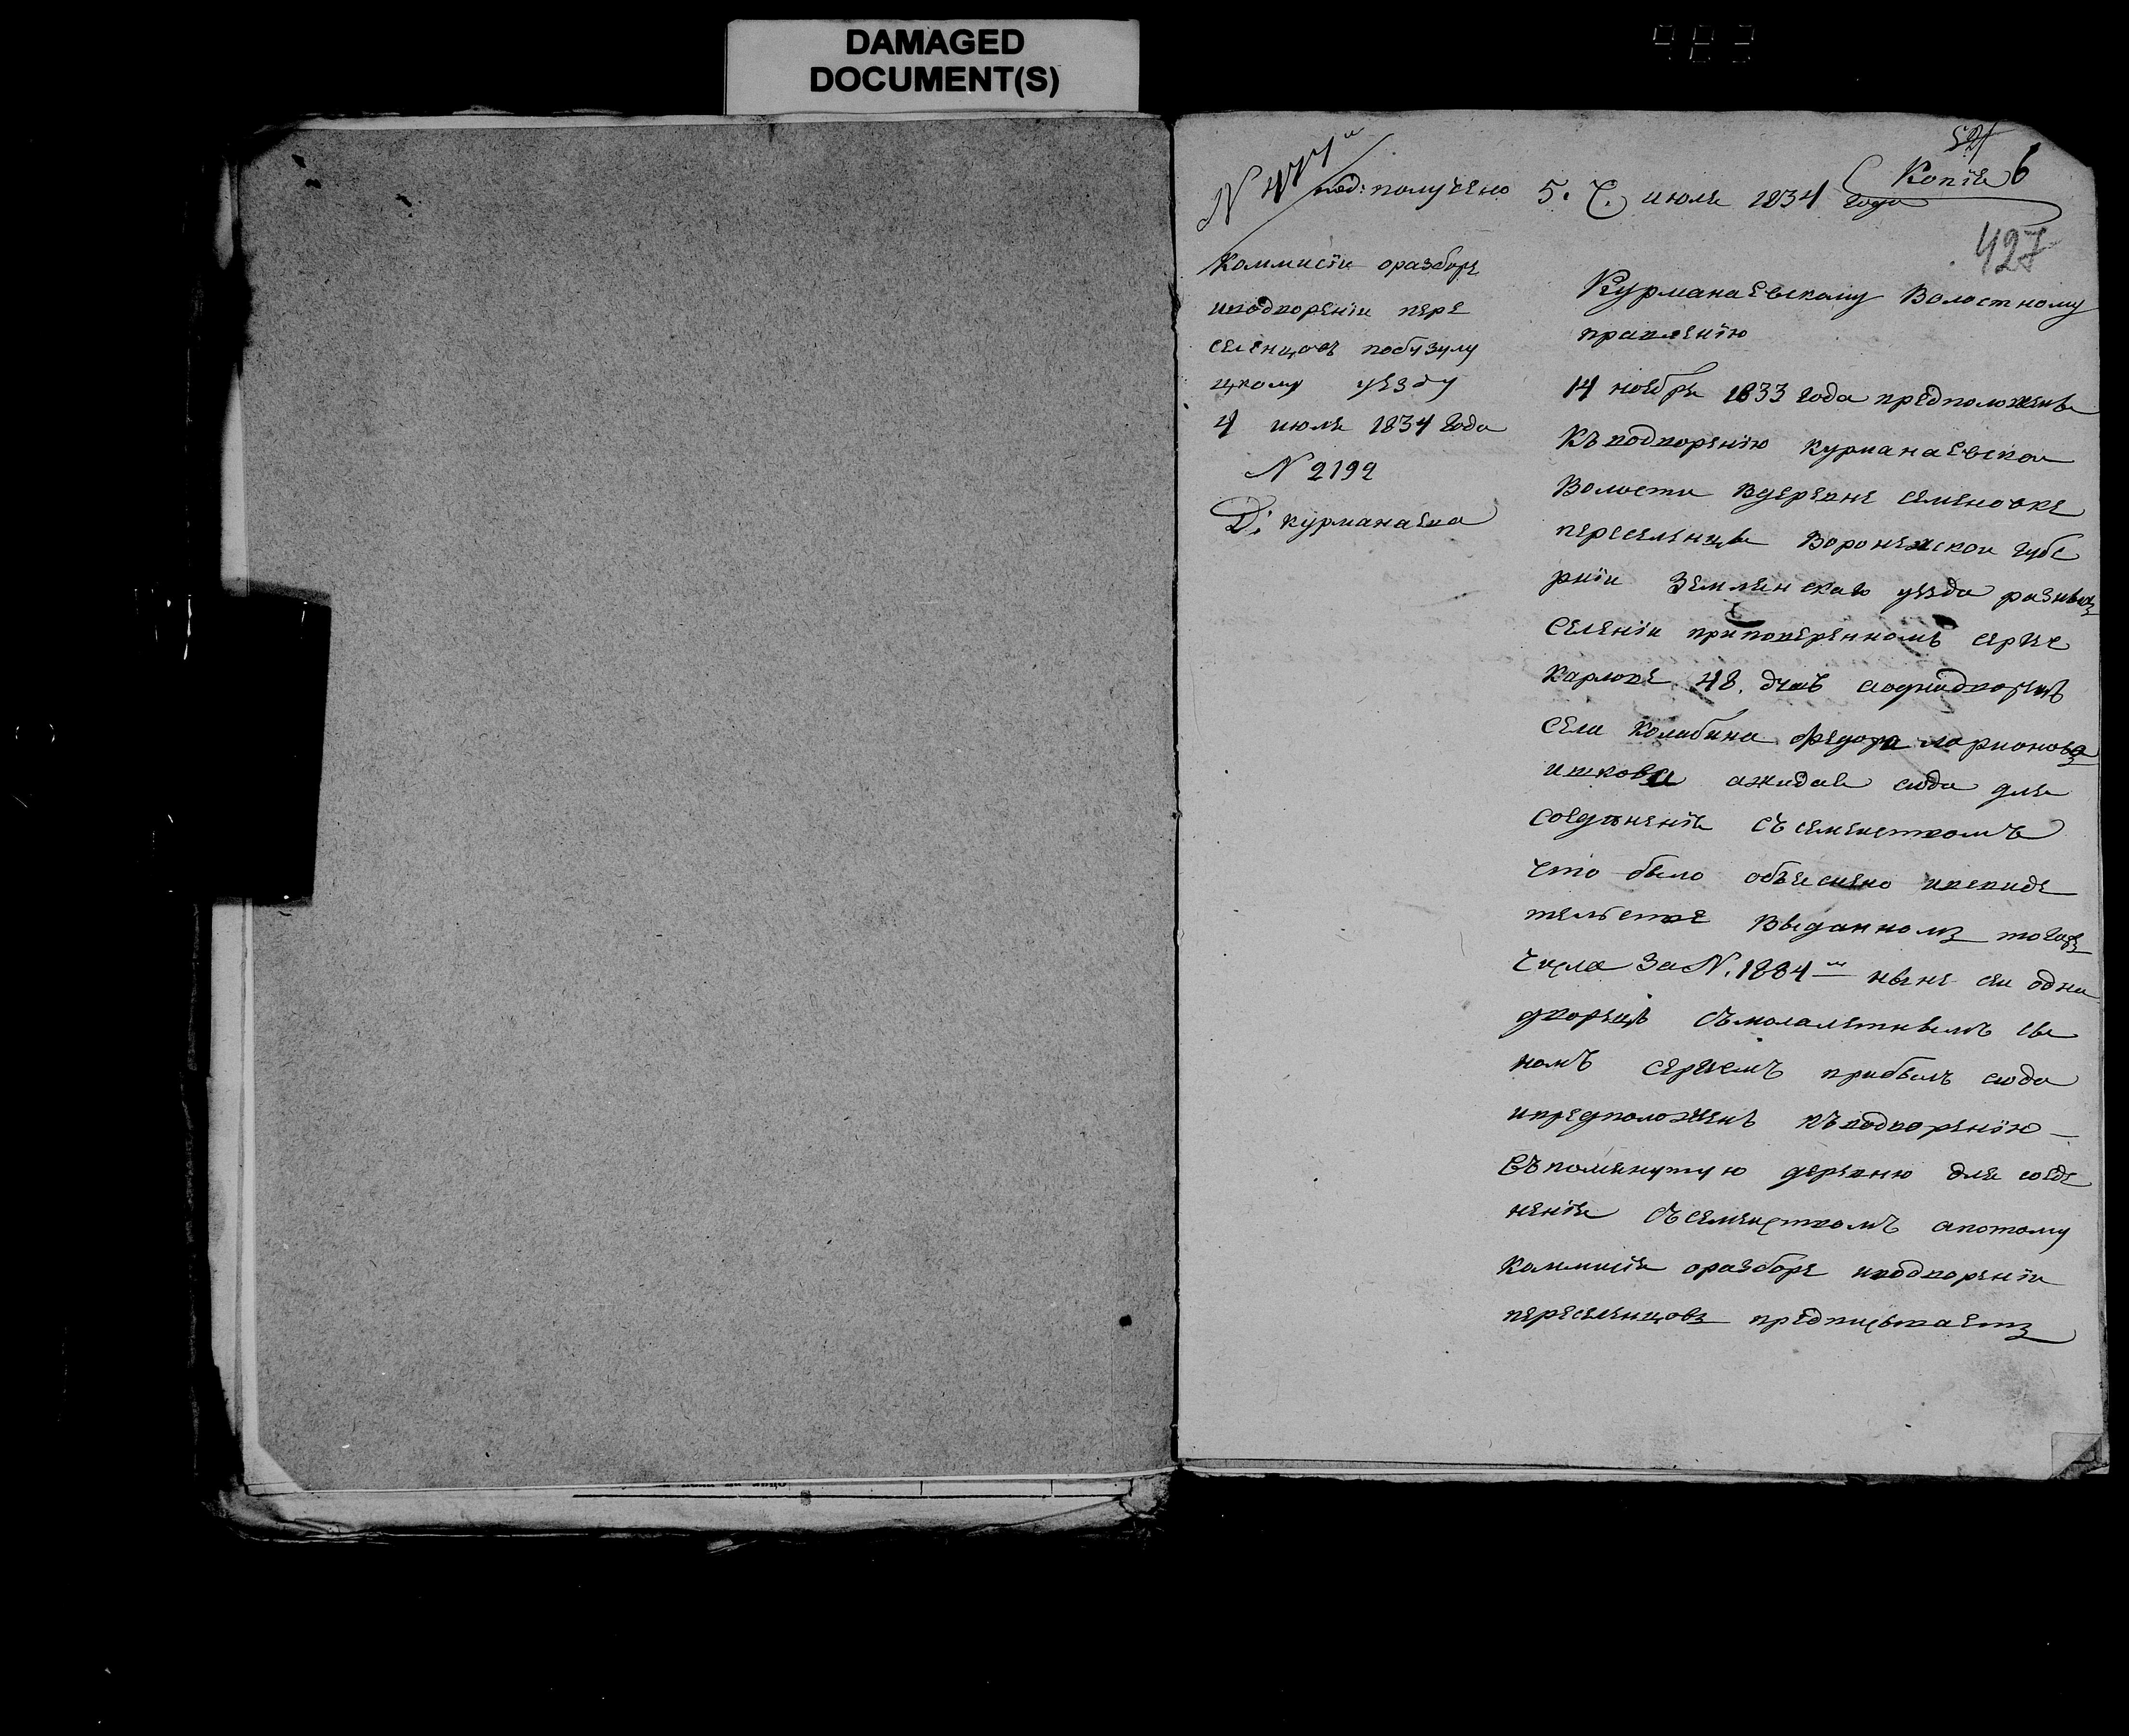 DAMAGED
DOCUMENT(S)
Копія 6
под: получено 5. Ч. июля 1834 года
427
Коммисіи оразборе
иводвореніи пере
селенцовъ побузулу
цкому уезду
4 июля 1834 года
N 2192
Д: курманаева
Курманаевскому Волостному
правленію
14 ноебря 1833 года предположены
Къ водворенію курманаевской
Волости вдеревне семеновке
переселенцы Воронежской губе
рніи Землянскаго уезда разныхъ
селеніи приповеренномъ сергее
Карлове 48. душъ
села Колабина федора ларионова
ожидая сюда для
соединенія съ семействомъ
что было объяснено всвиде
тельстве Выданномъ тогоже
Числа За N. 1884 ныне сеи одно
дворецъ съмалалетнымъ сы
номъ сергеемъ прибылъ сюда
ипредположенъ къводворенію
въ помянутую деревню для соеде
ненія съсемействомъ апотому
Коммисія оразборе иводвореніи
переселенцовъ предписываетъ